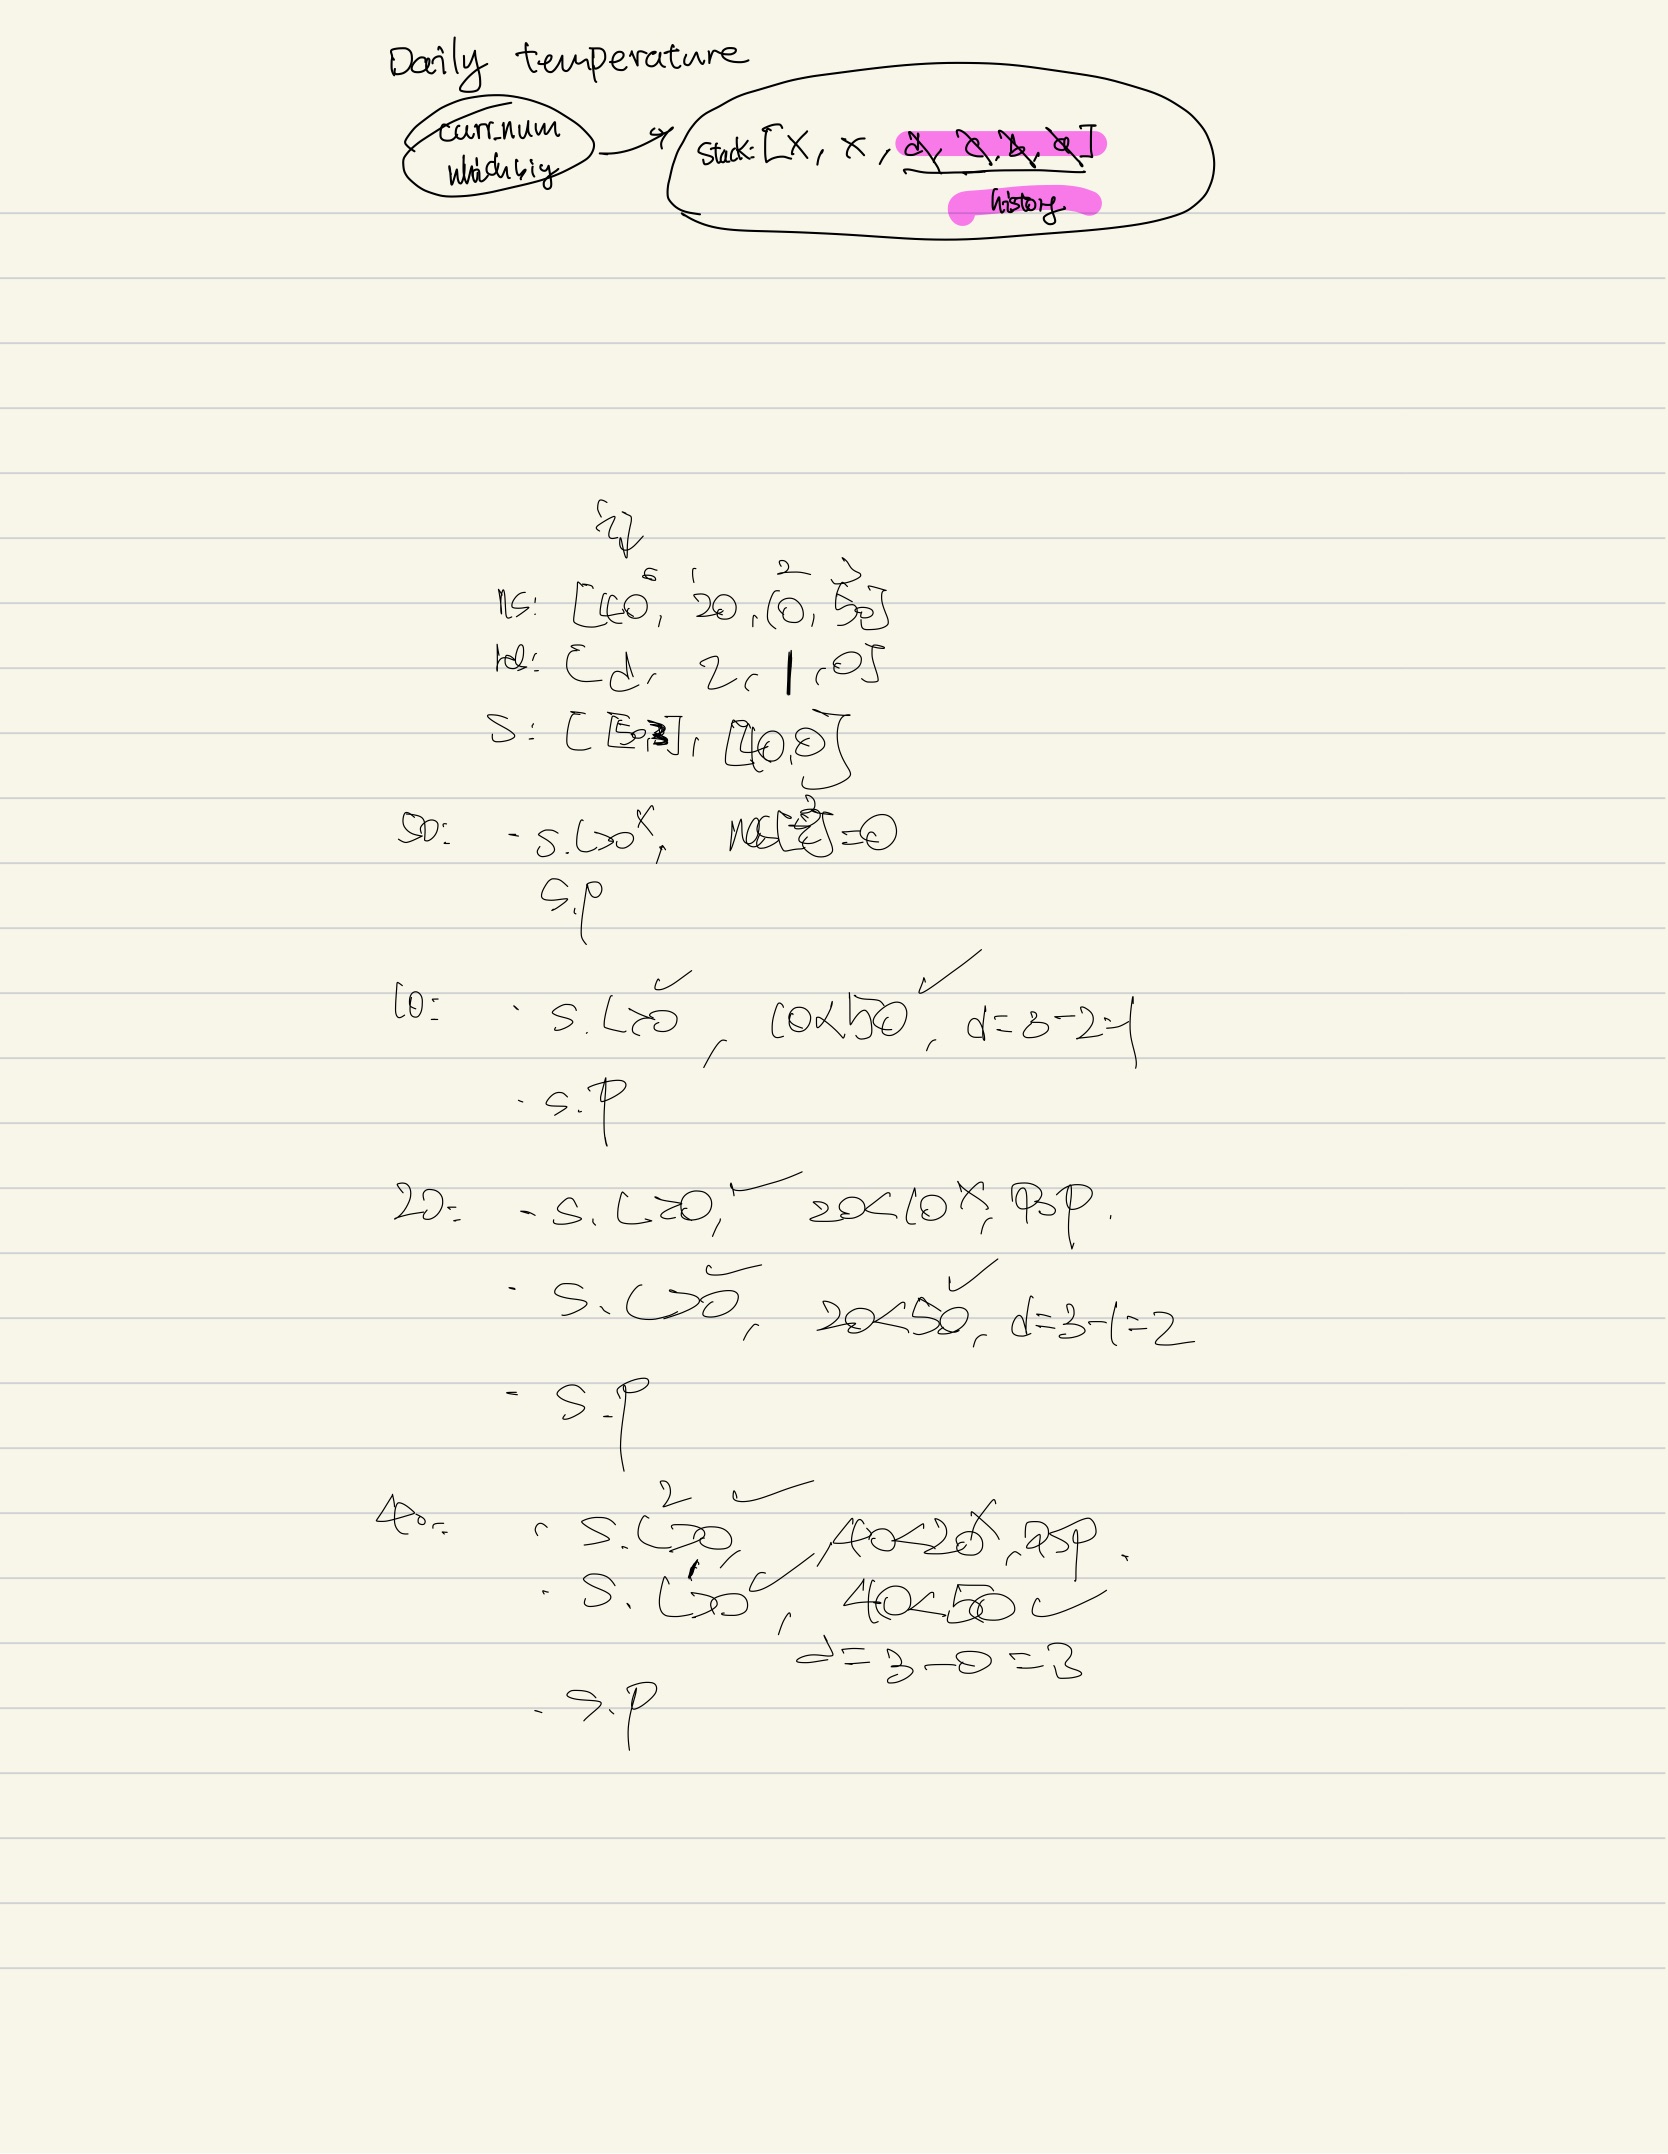 Daily temperature
curr_num
which big
stack: [x, x, d, c, b, a]
history
0 1 2 3
ns: [40, 20, 10, 50]
[d, 2, 1, 0]
S: [[50,3], [40,0]]
50: - s.L>0 x, [3]=0
S.p
10: · s.L>0 ✓, 10<50 ✓, d=3-2=1
· s.p
20: - s.L>0, ✓ 20<10 x,
· s.L>0 ✓, 20<50 ✓, d=3-1=2
- s.p
40: · s.L>0, 2 ✓ 40<20 x,
· s.L>0 1 ✓, 40<50 ✓
d=3-0=3
· s.p